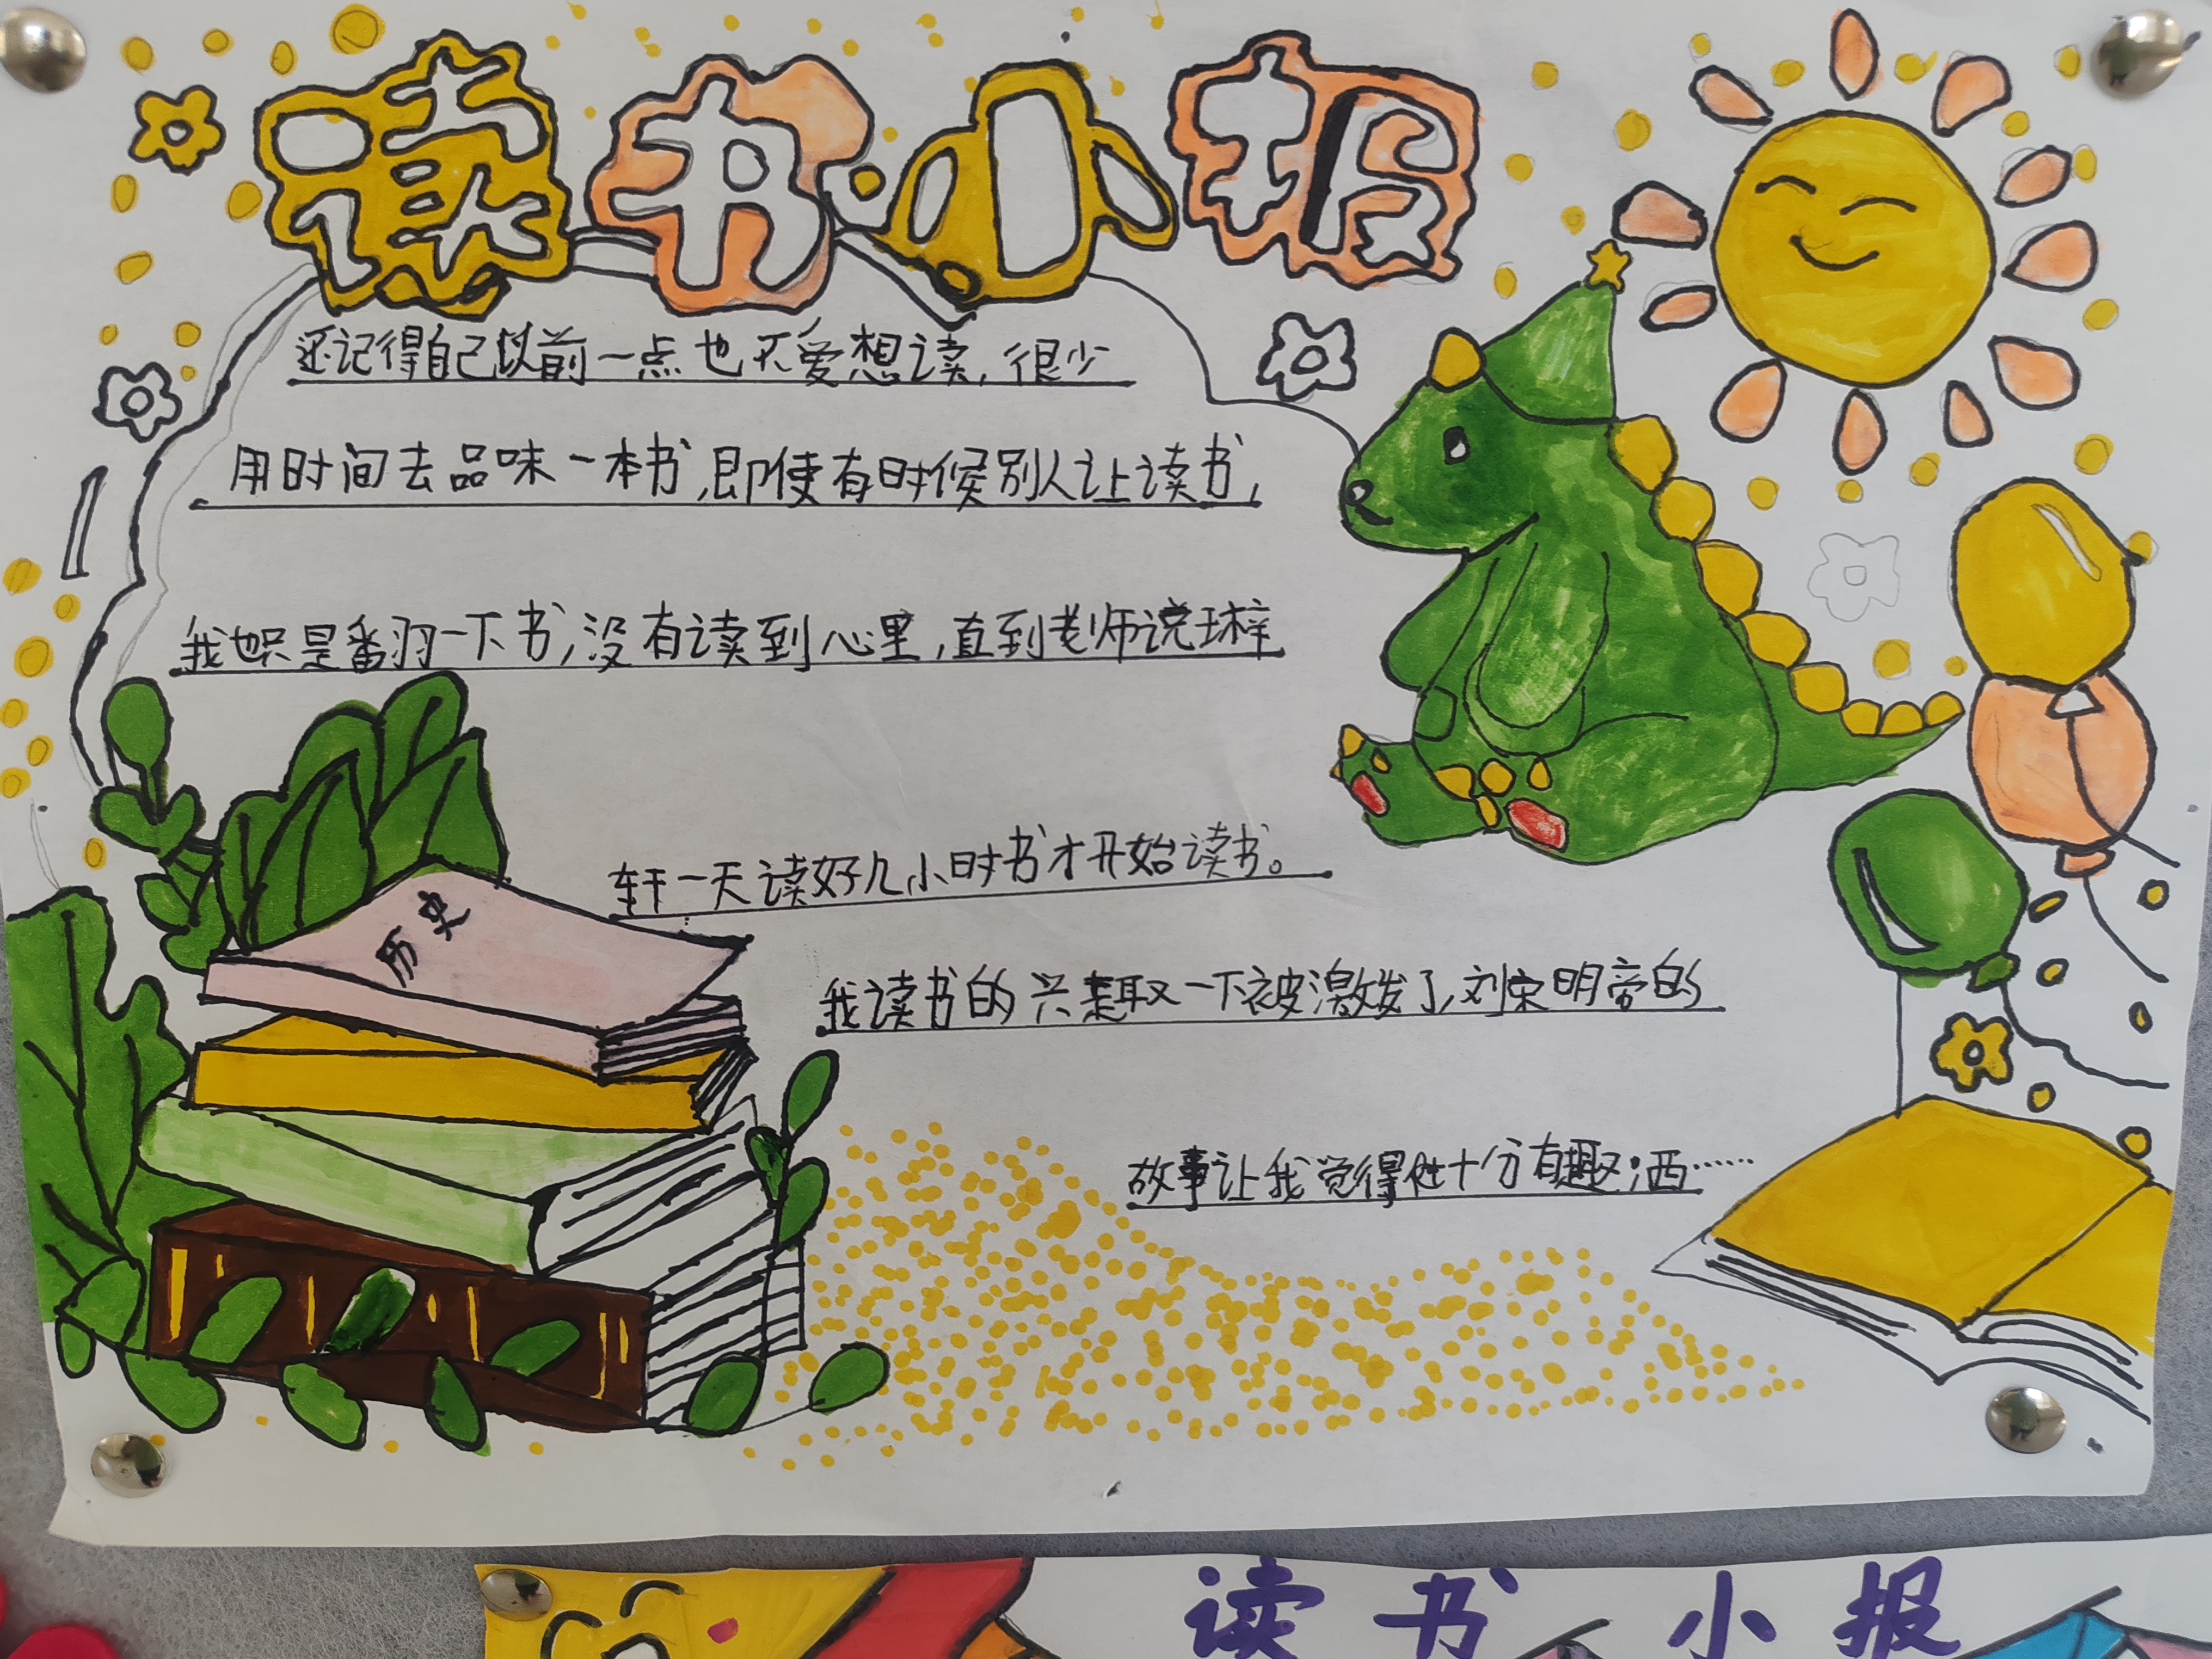 读书小报
还记得自己以前一点也不爱想读，很少
用时间去品味一本书，即使有时候别人让读书，
我也只是翻一下书，没有读到心里，直到老师说梓
轩一天读好几小时书才开始读书。
历史
我读书的兴趣一下被激发了，刘宋明帝的
故事让我觉得他十分有趣；西……
读书小报